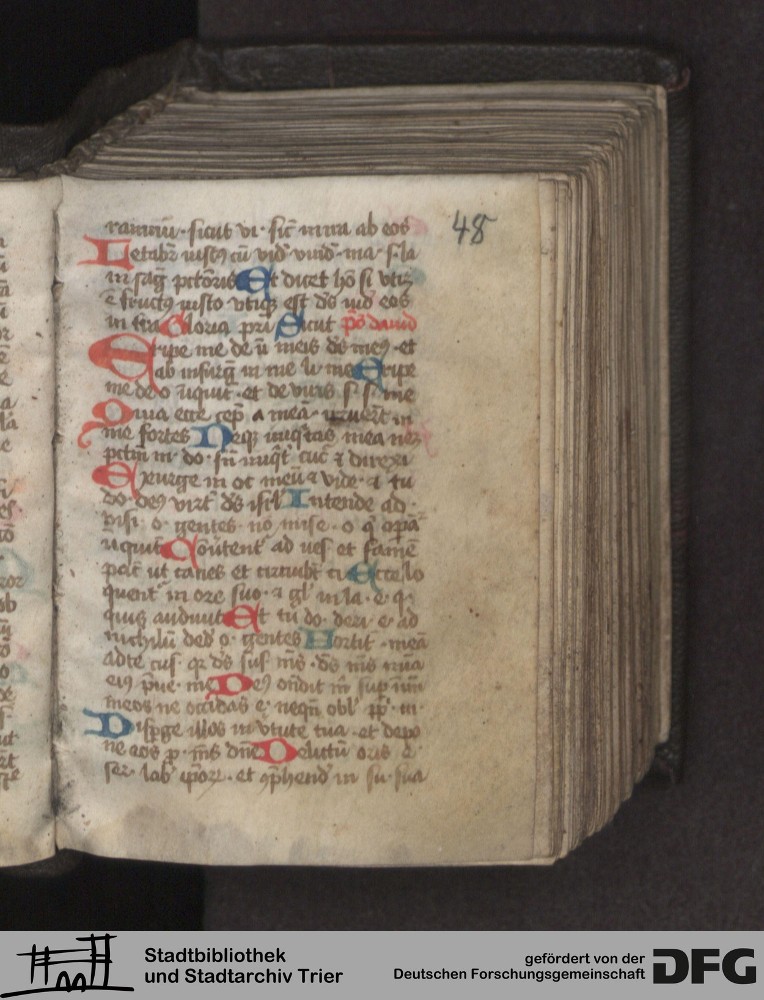 48
ramnū · sicut vi · sic̄ in ira ab eos
Letabr̄ iustꝯ cū vid̄ vind̄ · ma · s · la
in sāg pctōris Et dicet hō si vtiꝫ
ē fructꝯ iusto vtiqꝫ est ds̄ iud̄ eos
in tra Gloria pri Sicut ps̄ dauid
Eripe me de ū meis ds̄ meꝯ · et
ab insurḡ in me li me Eripe
me de o iiquit · et de viris s · s · me
Quia ecce cep̄ a meā · in
me fortes Neqꝫ iniqtas mea neꝫ
pctm̄ m · do · sn̄ iniqt̄ cuc̄ ⁊ direxi
Exurge in oc meū ⁊ vide · ⁊ tu
do · deꝯ virt̄ ds̄ isrl̄ Intende ad ·
visi · o · gentes · no mise · o q opāt̄
iiquit̄ Conūtent̄ ad ves̄ et famē
pac̄t ut canes et circuibt̄ ci Ecce lo
quent̄ in ore suo · ⁊ gl̄ in la · e · q ·
quis audiuit Et tu do · deri · e · ad
nichilū ded̄ o · gentes Fortit · meā
ad te cus̄ · qr ds̄ sus̄ ms̄ · ds̄ ms̄ mīa
eiꝯ p̄ue · me Deꝯ on̄dit m̄ sup inī
meos ne occidas e · neqn̄ obl̄ · pp̄ · m ·
Dispge illos in vtute tua · et depo
ne eos p · ms̄ dn̄e Delictū oris e ·
ser · lab̄ ipoꝝ · et ꝯphend̄ in su · sua
Stadtbibliothek
und Stadtarchiv Trier
gefördert von der
Deutschen Forschungsgemeinschaft
DFG